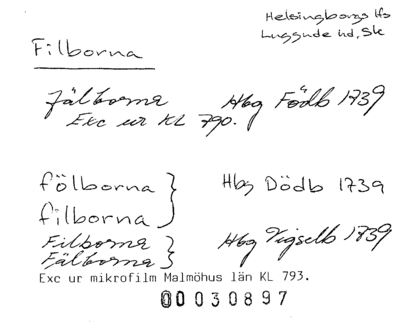 Helsingborgs lfs
Luggude hd, Sk
Filborna
Fälborna Hbg Födb 1739
Exc ur KL 790.
fölborna } Hbg Dödb 1739
filborna
Filborna } Hbg Vigselb 1739
Fälborna
Exc ur mikrofilm Malmöhus län KL 793.
00030897